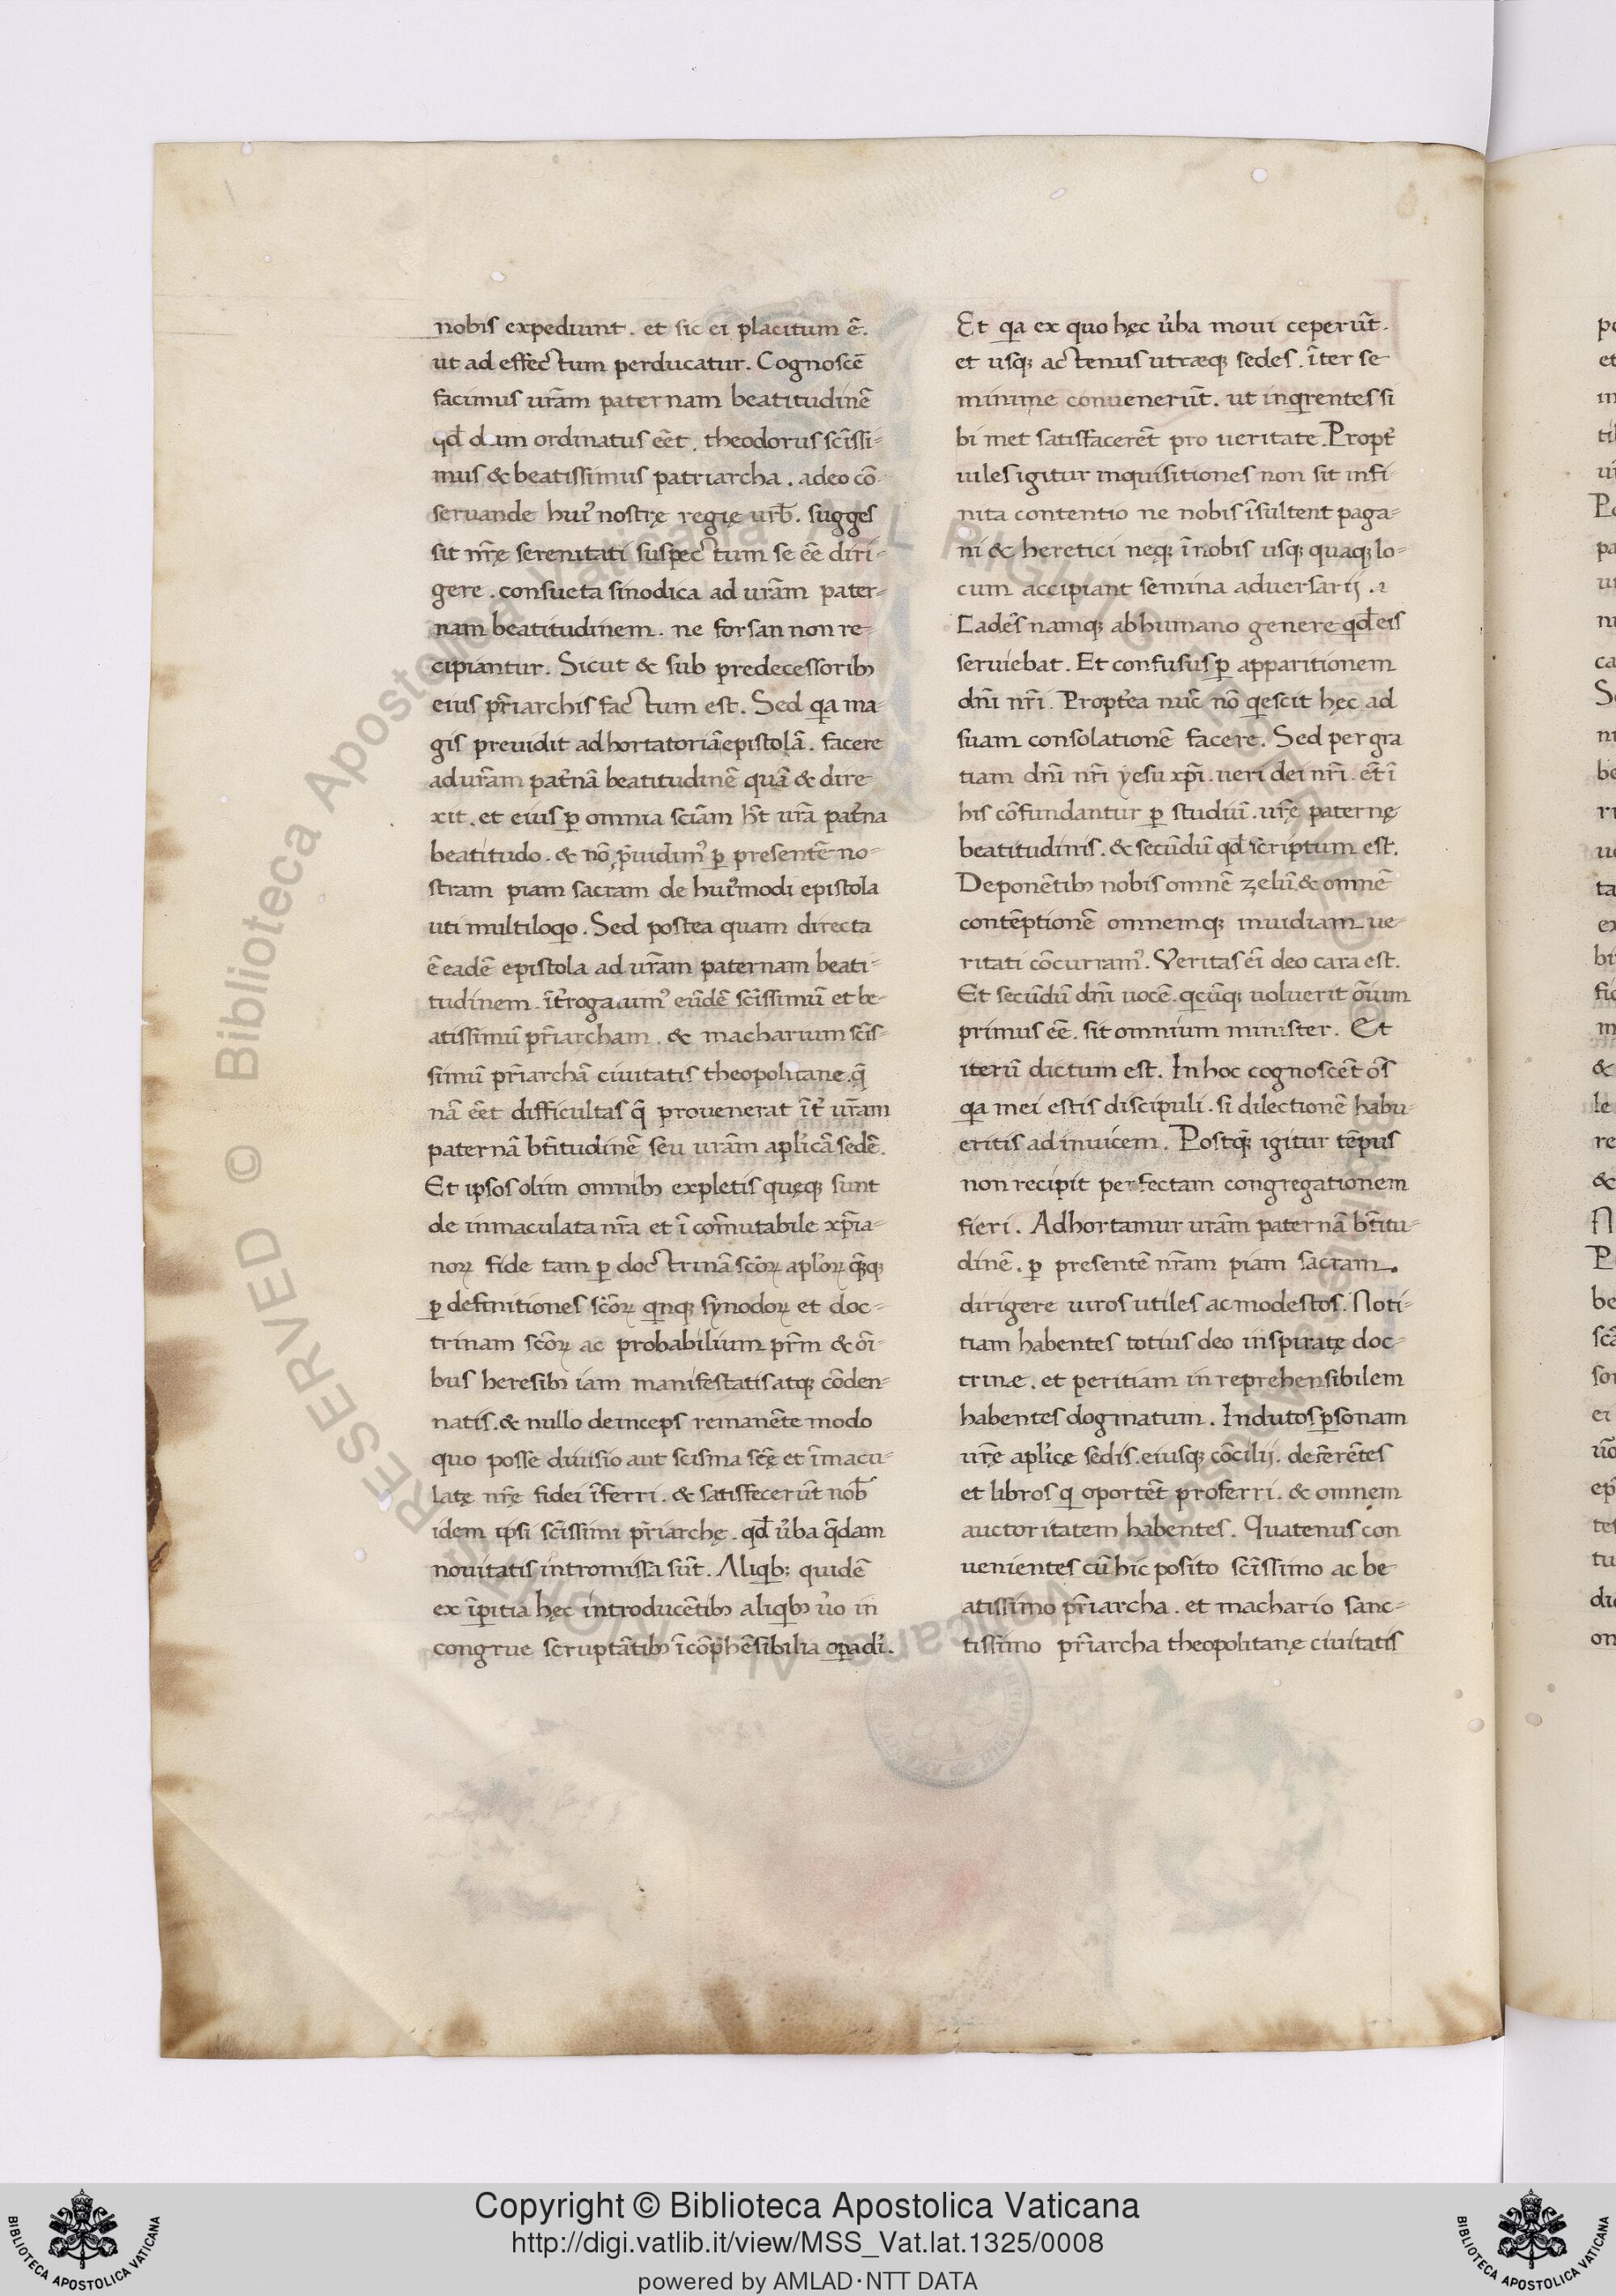 nobis expediunt. et sic ei placitum ē.
ut ad effectum perducatur. Cognoscē
facimus urām paternam beatitudinē
qd̄ dum ordinatus eēt. theodorus scīssi-
mus & beatissimus patriarcha. adeo cō
seruande hui᾽ nostrę regię urb̄. sugges
sit nr̄ę serenitati suspectum se eē diri-
gere. consueta sinodica ad urām pater-
nam beatitudinem. ne forsan non re-
cipiantur. Sicut & sub predecessorib;
eius pr̄iarchis factum est. Sed qa ma-
gis preuidit adhortatoriā epistolā. facere
ad urām pat̄nā beatitudinē quā & dire-
xit. et eius p̱ omnia sciām h̄t urā pat̄na
beatitudo. & nō p̄uidim᾽ p̱ presentē no-
stram piam sacram de hui᾽modi epistola
uti multiloqo. Sed postea quam directa
ē eadē epistola ad urām paternam beati-
tudinem. īt̄rogauim᾽ eūdē scīssimū et be-
atissimū pr̄iarcham. & macharium scīs-
simū pr̄iarchā ciuitatis theopolitane. q̄
nā eēt difficultas q̄ prouenerat īt̄ urām
paternā bt̄itudinē seu urām aplicā sedē.
Et ipsos olim omnib; expletis quęq; sunt
de inmaculata nr̄a et ī com̄utabile xp̄ia-
noꝝ fide tam p̱ doctrinā scōꝝ aplōꝝ q̄q;
p̱ definitiones scōꝝ qnq; synodoꝝ et doc-
trinam scōꝝ ac probabilium pr̄m & oī-
bus heresib; iam manifestatis atq; cōden-
natis. & nullo deinceps remanēte modo
quo posse diuisio aut scisma scę̄ et īmacu-
latę nr̄ę fidei īferri. & satisfecerūt nob̄
idem ipsi scīssimi pr̄iarchę. qd̄ u̓ba q̄dam
nouitatis intromissa sūt. Aliqb; quidē
ex īp̱itia hęc introducētib; aliqb; u̓o in
congrue scruptātib; īcōp̄hēsibilia op̱a di̓.
Et qa ex quo hęc u̓ba moui ceperūt.
et usq; actenus utræq; sedes. īter se
minime conuenerūt. ut inqrentes si
bi met satisfacerēt pro ueritate. Propt̄
uiles igitur inquisitiones non sit infi-
nita contentio ne nobis īsultent paga-
ni & heretici neq; ī nobis usq; quaq; lo-
cum accipiant semina aduersarij.
Cadēs namq; ab humano genere qd̄ eis
seruiebat. Et confusus p̱ apparitionem
dn̄i nr̄i. Propt̄ea nūc nō qescit hęc ad
suam consolationē facere. Sed per gra
tiam dn̄i nr̄i yesu xp̄i. ueri dei nr̄i. et̄ ī
his cōfundantur p̱ studiū. ur̄ę paternę
beatitudinis. & secūdū qd̄ scriptum est.
Deponētib; nobis omnē zelū & omnē
contēptionē omnemq; inuidiam ue-
ritati cōcurram᾽. Veritas eī deo cara est.
Et secūdū dn̄i uocē. qcūq; uoluerit oīum
primus eē. sit omnium minister. Et
iterū dictum est. In hoc cognoscēt oēs
qa mei estis discipuli. si dilectionē habu-
eritis ad inuicem. Postq̄ igitur tēpus
non recipit perfectam congregationem
fieri. Adhortamur urām paternā bt̄itu-
dinē. p̱ presentē nr̄am piam sacram.
dirigere uiros utiles ac modestos. Noti-
tiam habentes totius deo inspiratę doc-
trinæ. et peritiam in reprehensibilem
habentes dogmatum. Indutos p̱sonam
ur̄ę aplicę sedis. eiusq; cōcilij. deferētes
et libros q oportēt proferri. & omnem
auctoritatem habentes. Quatenus con
uenientes cū hic posito scīssimo ac be-
atissimo pr̄iarcha. et machario sanc-
tissimo pr̄iarcha theopolitanę ciuitatis
Copyright © Biblioteca Apostolica Vaticana
http://digi.vatlib.it/view/MSS_Vat.lat.1325/0008
powered by AMLAD·NTT DATA
BIBLIOTECA APOSTOLICA VATICANA
BIBLIOTECA APOSTOLICA VATICANA